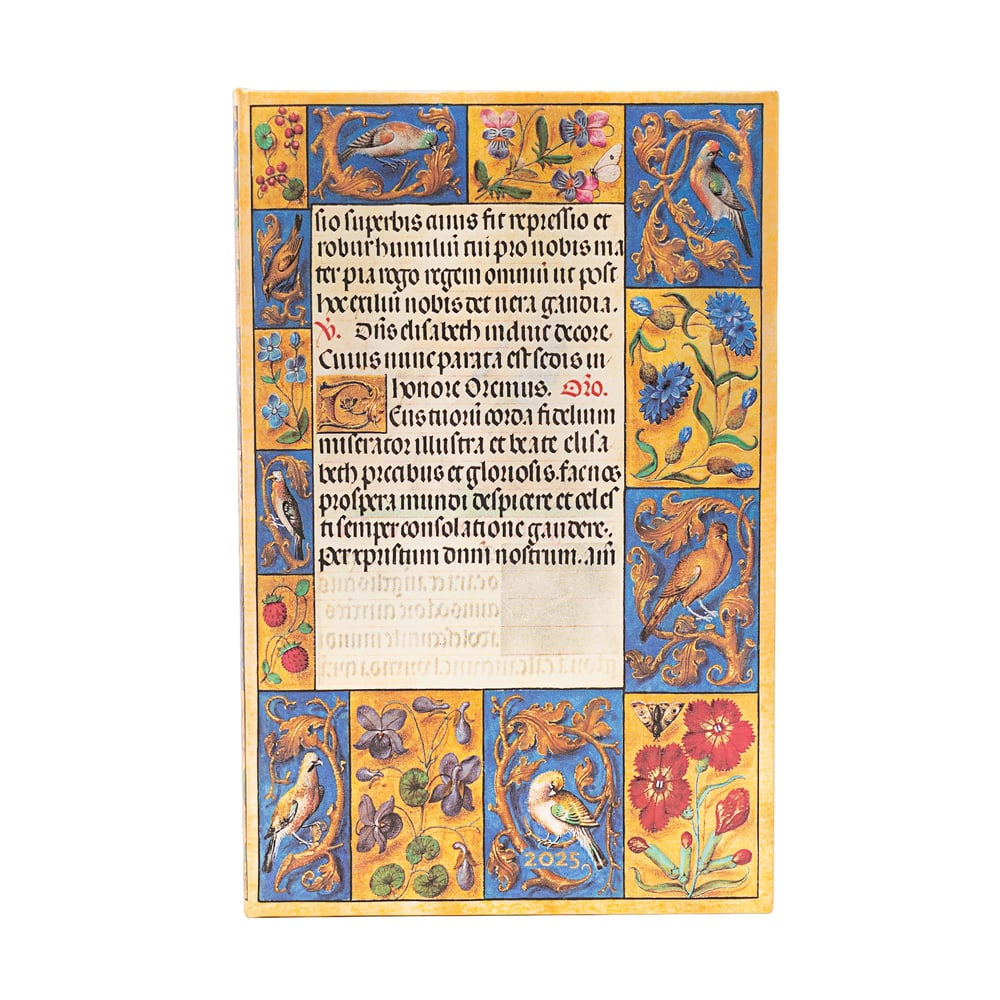 sio superbis cuius fit repressio et
robur humiliū tui pro nobis ma
ter pia rogo regem omniū ut post
hoc exiliū nobis det uera gaudia.
℣. Dn̄s elisabeth induit decore.
Cuius nunc parata est sedis in
honore Oremus. Or̄o.
DEus tuorū corda fidelium
miserator illustra et beate elisa
beth precibus et gloriosis. fac nos
prospera mundi despicere et celes
ti semper consolatione gaudere.
Per xpristum dn̄m nostrum. Am̄
2025